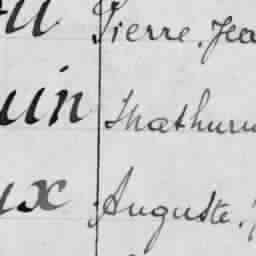 Pierre, Jea
uin Mathurin
ux Auguste, J